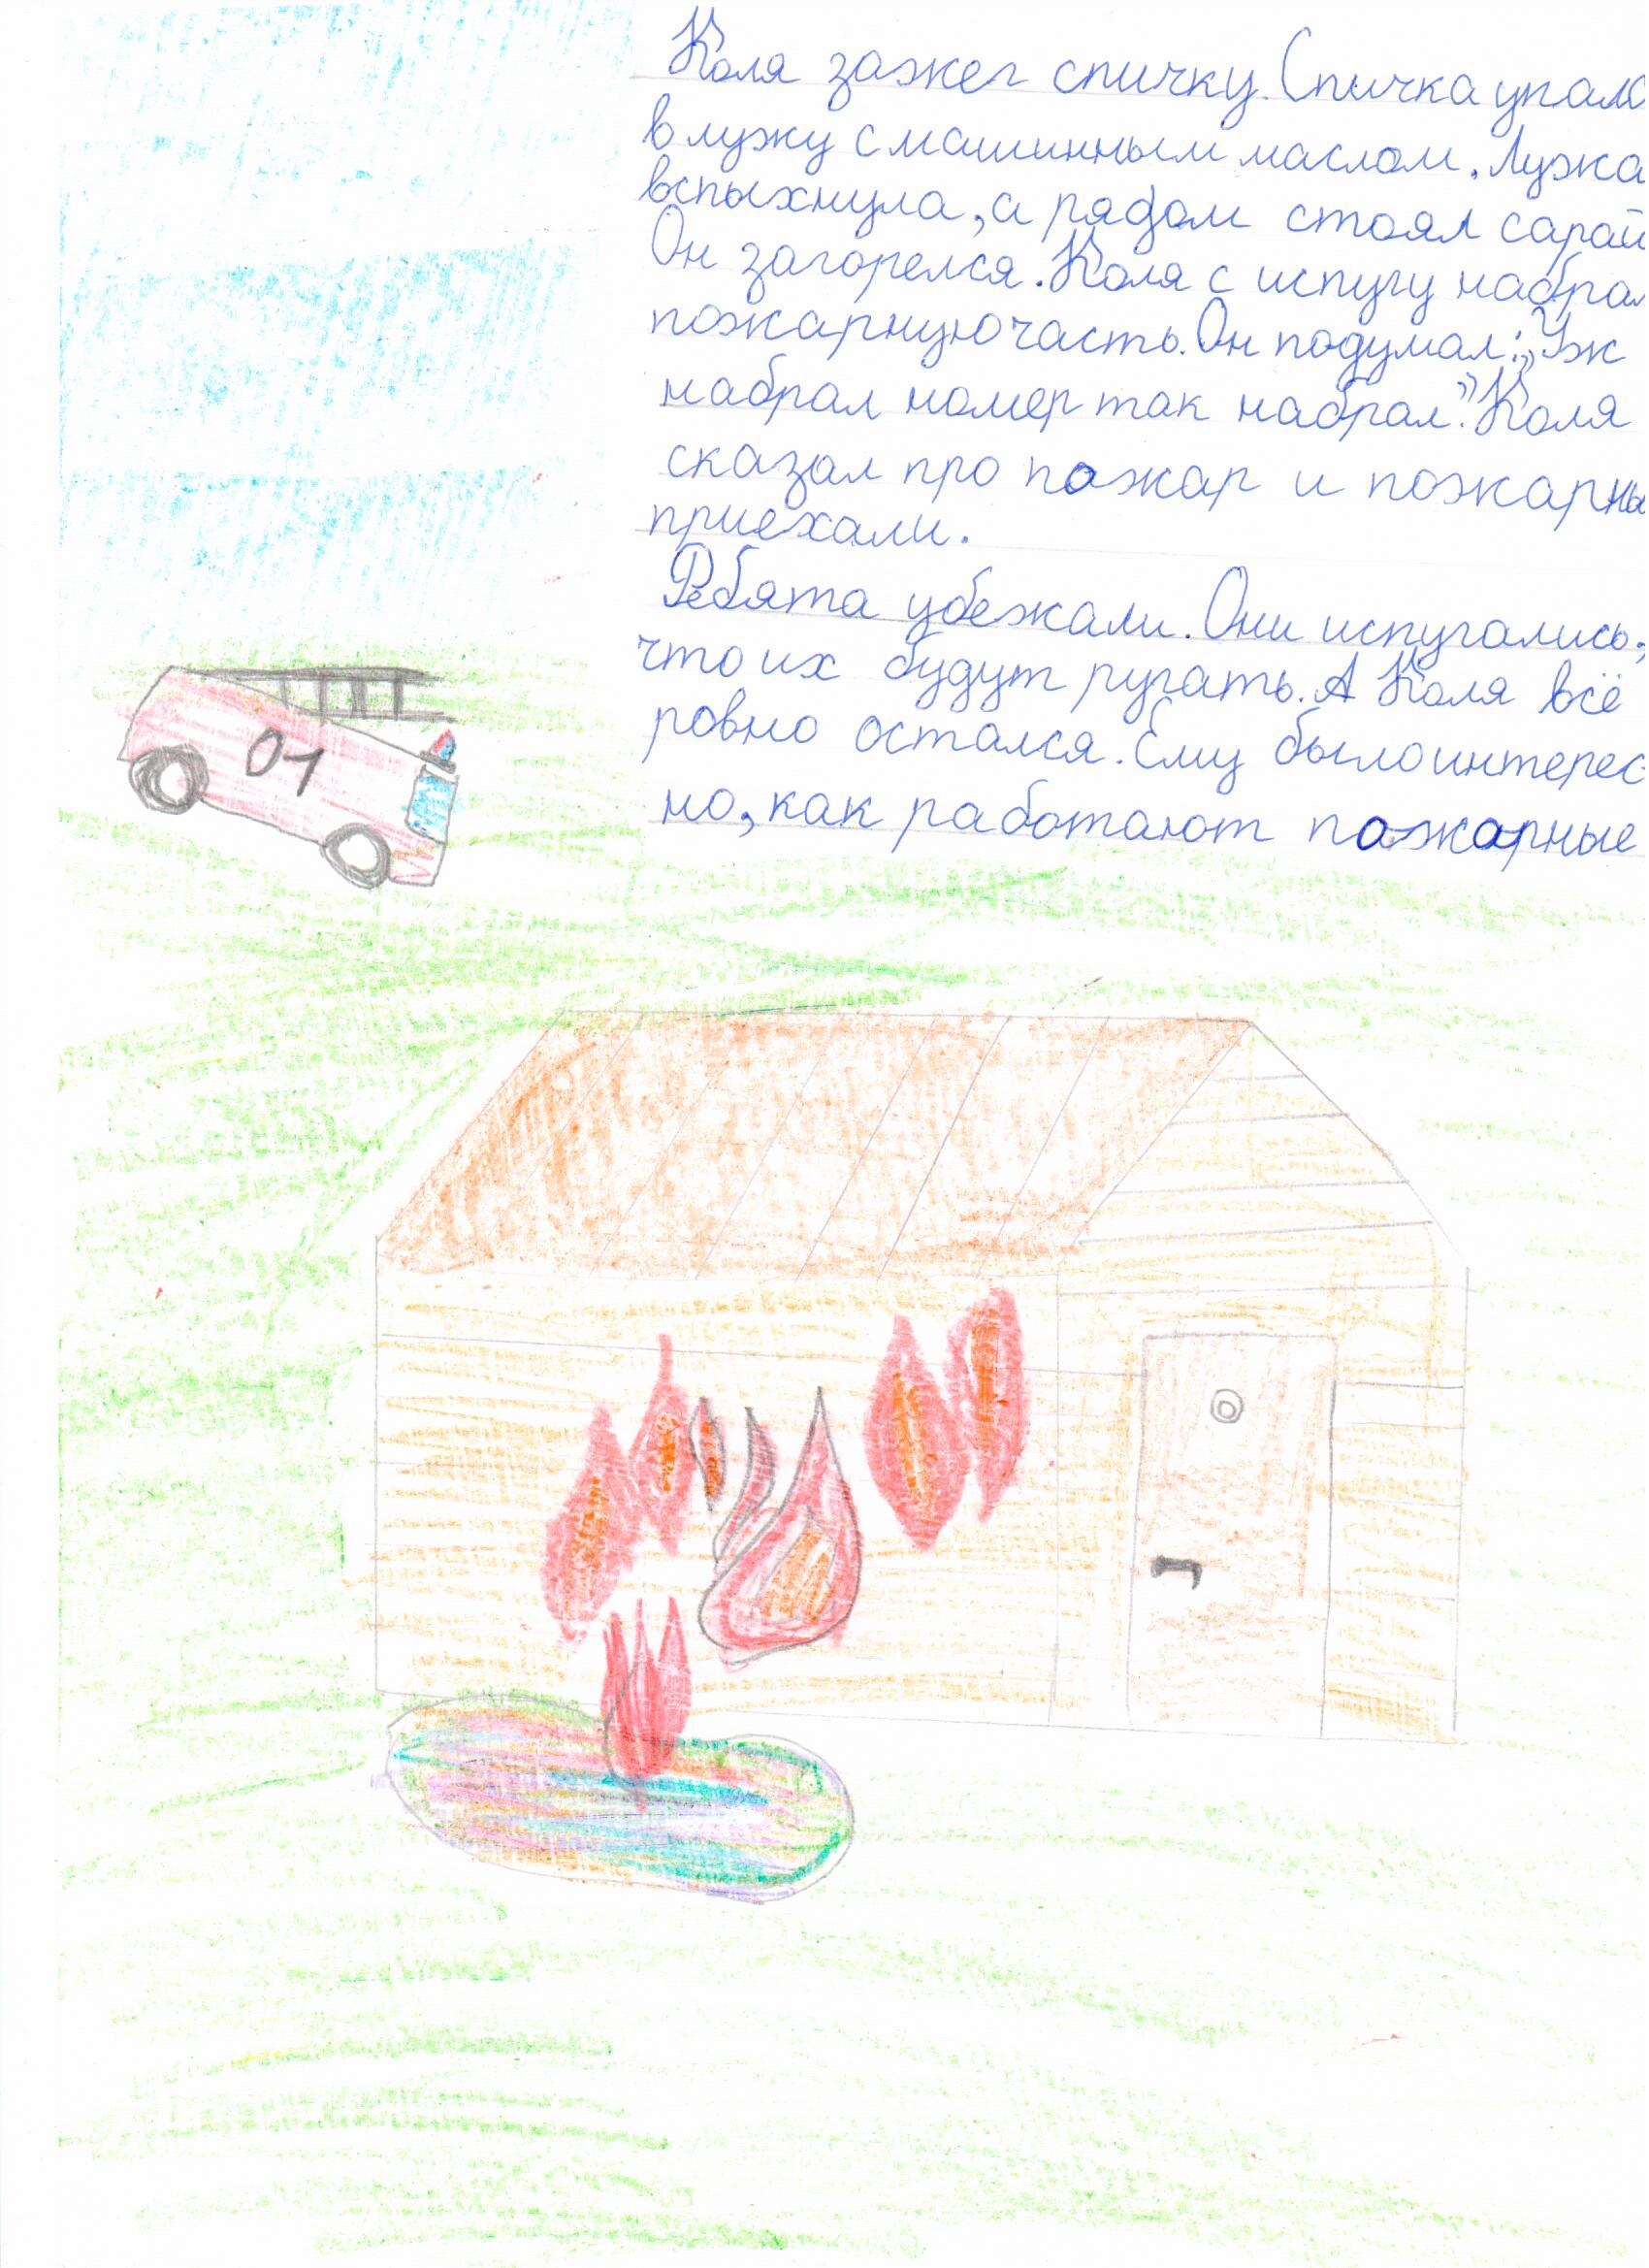 Коля зажег спичку. Спичка упала
в лужу с машинным маслом. Лужа
вспыхнула, а рядом стоял сарай
Он загорелся. Коля с испугу набрал
пожарную часть. Он подумал: „Уж
набрал номер так набрал.” Коля
сказал про пажар и пожарны
приехали.
Ребята убежали. Они испугались,
что их будут ругать. А Коля всё
ровно остался. Ему было интерес-
но, как работают пажарные
01